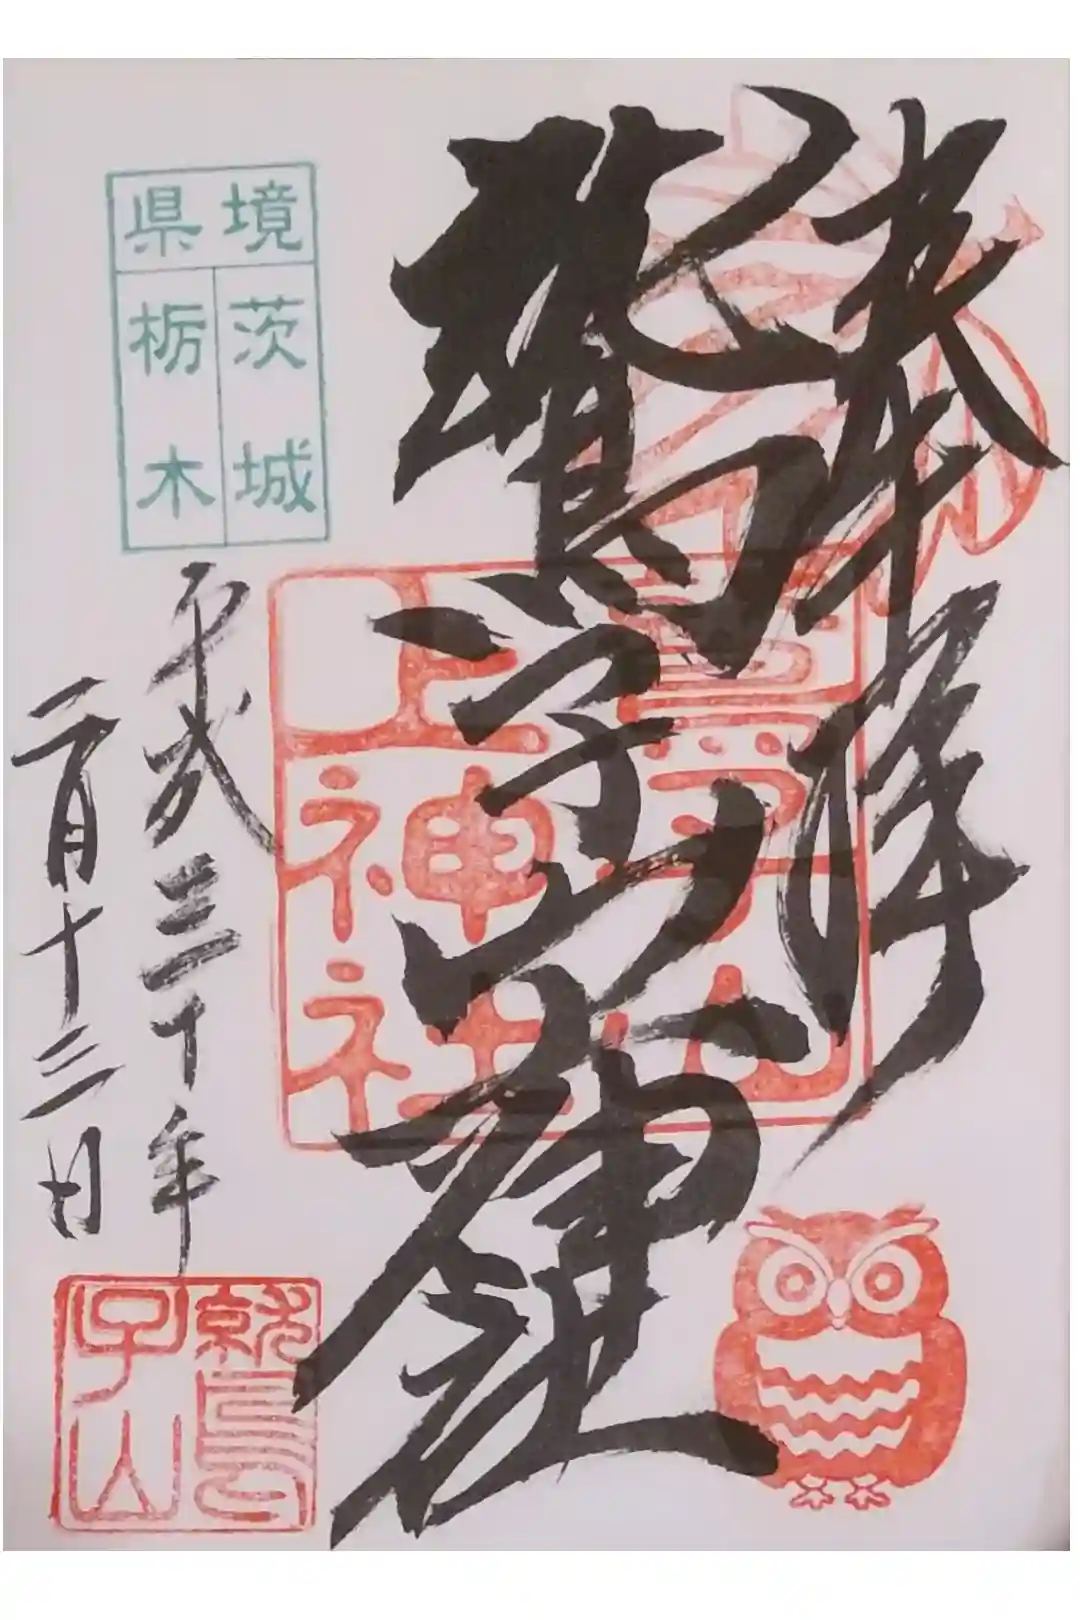 奉拝
鷲子山上神社
鷲子山
上神社
県境
茨城
栃木
平成三十年
二月十三日
鷲
子山